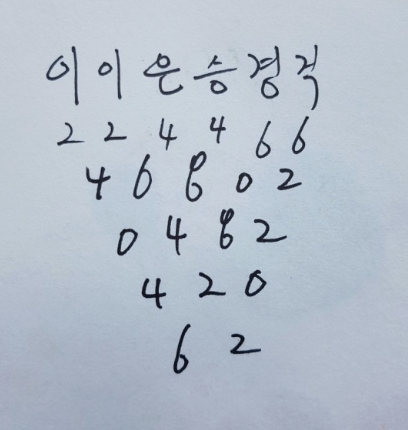 이 이 은 승 경
2 2 4 4 6 6
4 6 8 0 2
0 4 8 2
4 2 0
6 2